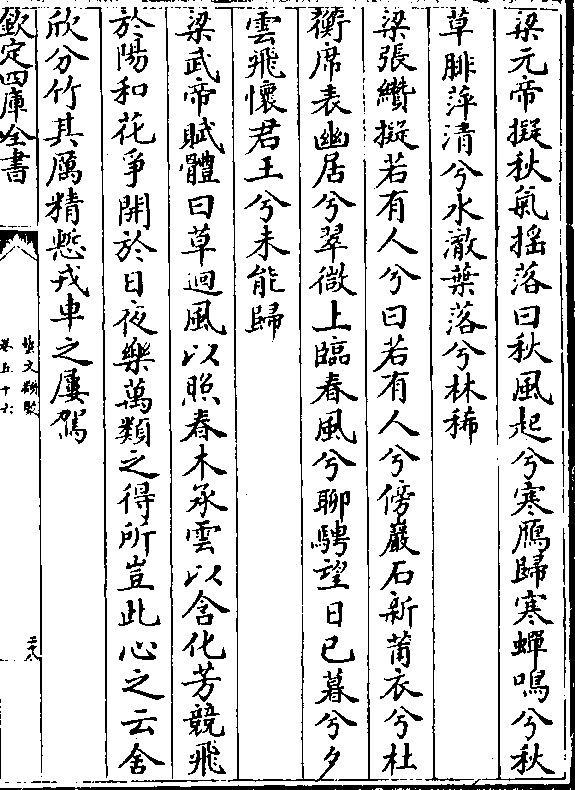 梁元帝擬秋氣揺落曰秋風起兮寒鴈歸寒蟬鳴兮秋
草腓萍清兮水澈葉落兮林稀
梁張纘擬若有人兮曰若有人兮傍巖石新莆衣兮杜
衡席表幽居兮翠微上臨春風兮聊騁望日已暮兮夕
雲飛懷君王兮未能歸
梁武帝賦體曰草迴風以照春木承雲以含化芳競飛
於陽和花爭開於日夜樂萬類之得所豈此心之云舍
欣分竹其厲精慙戎車之屢駕
欽定四庫全書
藝文類聚
卷五十六
二十八